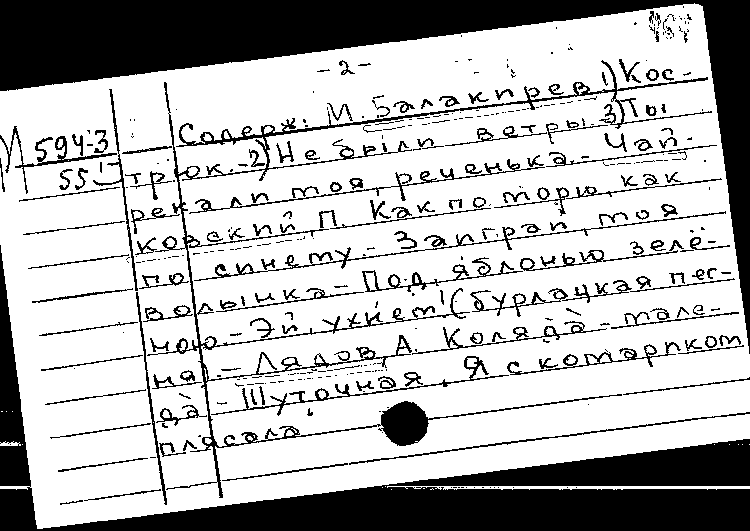 - 2 -
М 594-3
55
Содерж: М. Балакирев 1) Кос-
трюк. - 2) Не были ветры 3) Ты
река ли моя, реченька. - Чай-
ковский, П. Как по морю, как
по синему. - Заиграй, моя
волынка - Под яблонью зелё-
ною. - Эй, ухнем! (бурлацкая пес-
ня). - Лядов, А. Коляда - мале-
да - Шуточная. Я с комариком
плясала.